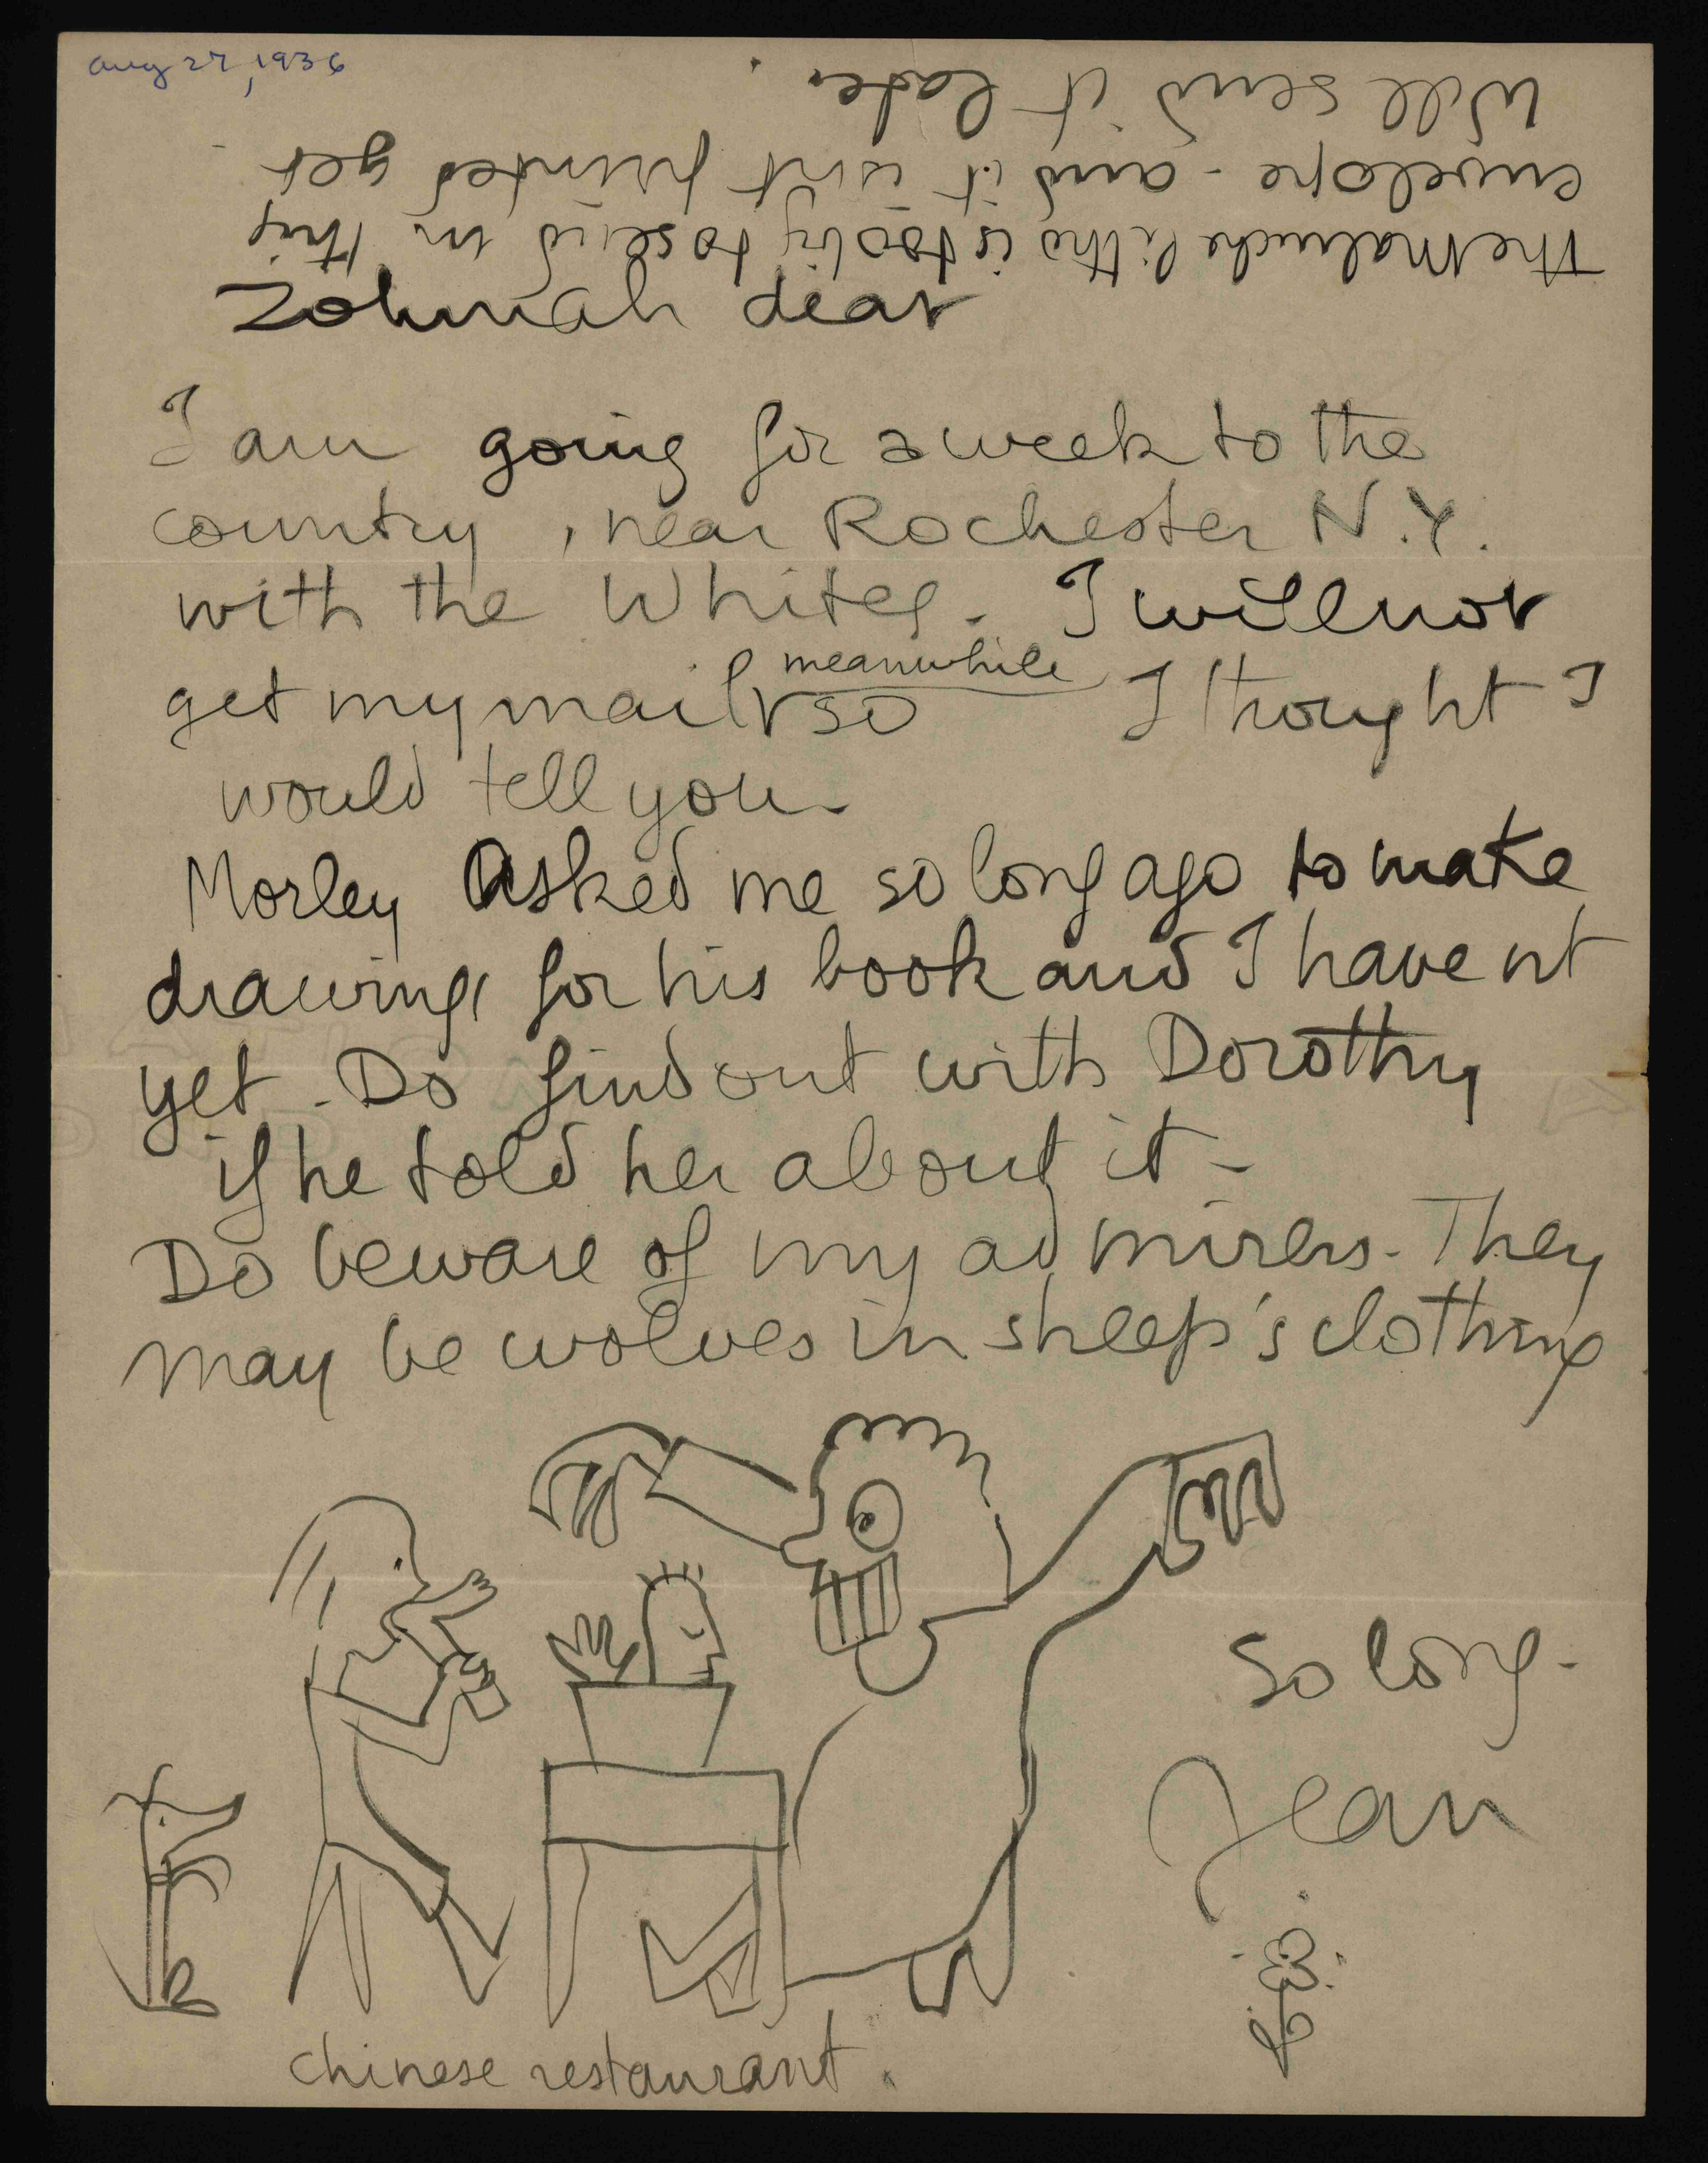 Aug 27, 1936
The Malinche litho is too big to send in this
envelope - and it isn't printed yet
Will send it later.
Zohmah dear
I am going for a week to the
country, near Rochester N.Y.
with the Whites. I will not
get my mail meanwhile so I thought I
would tell you -
Morley asked me so long ago to make
drawings for his book and I have nt
yet. Do find out with Dorothy
if he told her about it -
Do beware of my admirers. They
may be wolves in sheep's clothing
so long -
Jean
chinese restaurant.